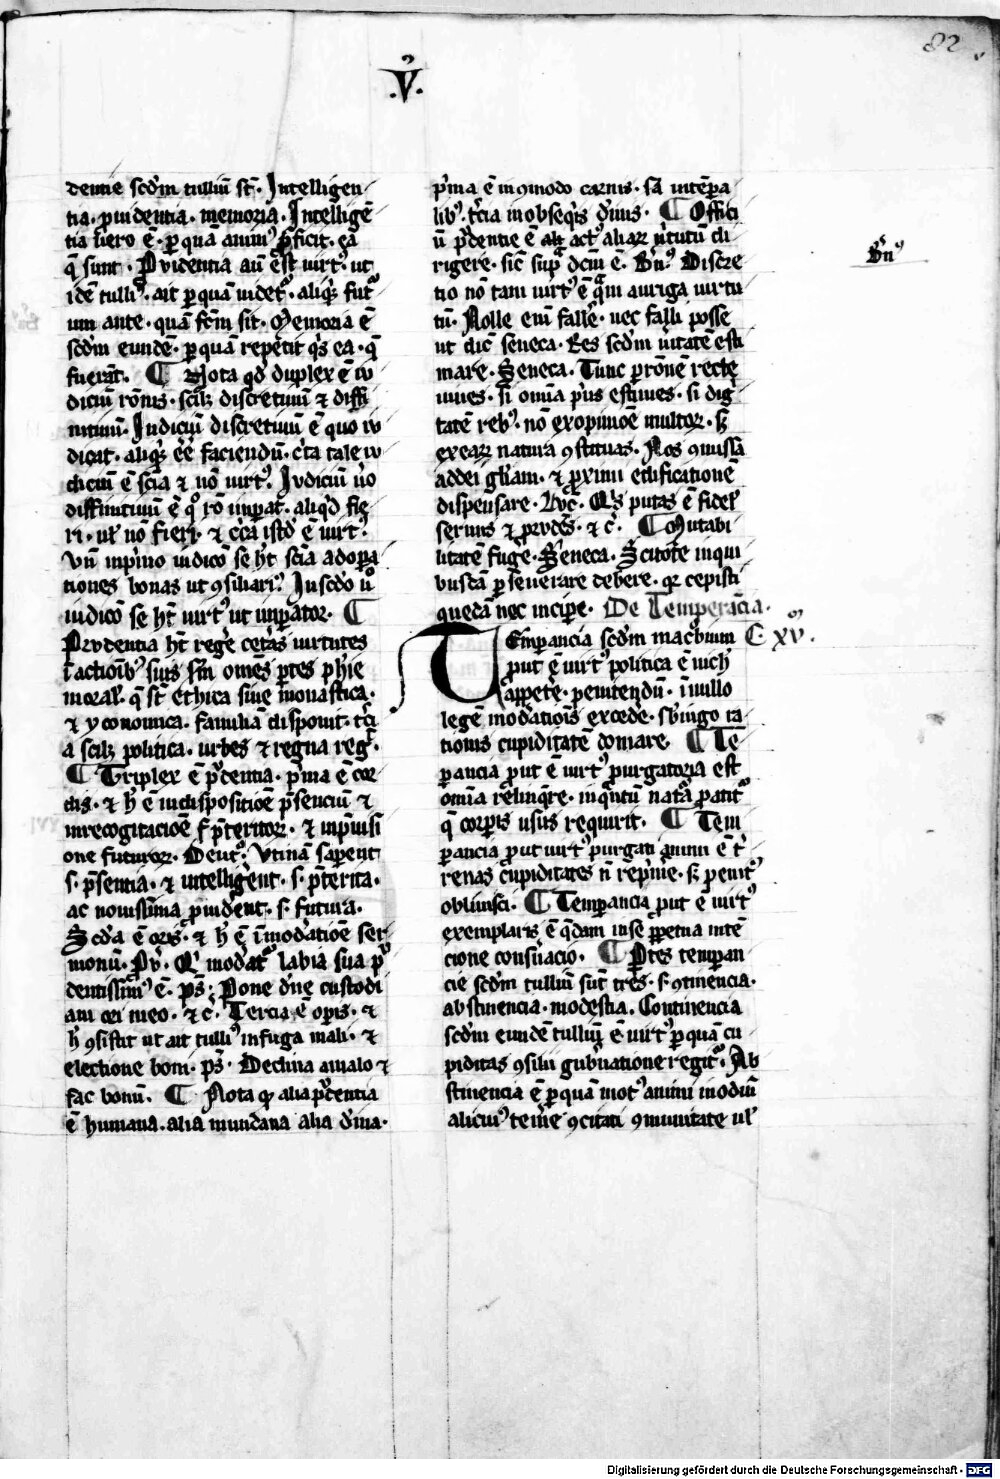 82
.V.
dentie scd̄m tulliū st̄. Intelligen
tia. prouidentia. memoria. Intelligē
tia u̓ero ē. ꝑ quā animꝰ ꝑficit. ea
q̄ sunt. Prouidentia aū ē uirtꝰ. ut
idē tulliꝰ. ait ꝑ quam uidetꝰ. aliqͥd futꝰ
um ante. quā fc̄m sit. Memoria ē
scd̄m eundē. ꝑ quā repetit qͥs ea. q̄
fuerāt. ¶ Nota qd̓ duplex ē iu
diciū rōnis. scilꝫ discretiuū ⁊ diffi
nitiuū. Iudiciū discretiuū ē quo iu
dicat. aliqͥd eē̄ faciendū. c̓ta tale iu
diciū ē scīa ⁊ nō uirtꝰ. Iudiciū u̓o
diffinitiuū ē qͦ rō imꝑat. aliqͥd fie
ri. ul̓ nō fieri. ⁊ c̓ca istd̓ ē uirtꝰ.
Vn̄ in pͥmo iudicō se ht̄ scīa ad oꝑa
tiones bonas ut ꝯsiliariꝰ. In scd̓o u̓o
iudicō se ht̄ uirtꝰ ut imꝑator. ¶
Prudentia ht̄ reg̓e cet̓as uirtutes
ī actioībꝰ suis sm̄ om̄s ꝑtes ph̓ie
moral̓. q̄ st̄ ethica siue monastica.
⁊ yconomica. familiā disponit. t̓ci
a scilꝫ politica. urbes ⁊ regna reg̓.
¶ Triplex ē pͥdentia. pͥma ē cor
dis. ⁊ h̓ ē in dispositiōe p̄senciū ⁊
in recogitaciōe p̄teritoꝝ. ⁊ in p̄uisi
one futuroꝝ. Deutꝰ. Vtinā saꝑent
.s. p̄sentia. ⁊ intelligerent. s. p̄terita.
ac nouissima prouidērent. s. futura.
Scd̓a ē oris. ⁊ h̓ ē ī mod̓atiōe ser
monū. Pv̄. Qͥ mod̓atꝰ labia sua pͥ
dentissimꝰ ē. ps̄. Pone dn̄e custodi
am ori meo. ⁊c̄. Tercia ē oꝑis. ⁊
h̓ ꝯsistit ut ait tulliꝰ in fuga mali. ⁊
electione boni. ps̄. Declina a malo ⁊
fac bonū. ¶ Nota qͦ alia pͥdentia
ē humana. alia mundana alia d̓ina.
pͥma ē in ꝯmodo carnis. scd̓a in tēꝑa
libꝰ. t̓cia in obseqͥs d̓inis. ¶ Offici
ū pͥdentie ē actꝰ aliaꝝ u̓tutū di
rigere. sic̄ supͣ dc̄m ē. B̓nꝰ. Discre
tio nō tam uirtꝰ ē qͣm auriga uirtu
tū. Nolle enī falle. nec falli posse
ut dic̄ seneca. Res scd̄m u̓itatē esti
mare. Seneca. Tunc ꝑ rōnē recte
uiues. si omīa pͥus estimes. si dig
tatē rebꝰ. nō ex opiniōe multoꝝ. sꝫ
ex eaꝝ natura ꝯstituas. Nos ꝯmissā
ad dei gl̓iam. ⁊ proximi edificationē
dispensare. Luc̄. Qͥs putas ē fidel̓
seruus ⁊ prudēs. ⁊c̄. ¶ Mutabi
litatē fuge. Seneca. Scitote inqui
busdā ꝑseuerare debere. qꝛ cepisti
quedā nec inciꝑe. De Temperācia.
TEmꝑancia scd̄m macrobium C. XV.
put ē uirtꝰ politica ē nich̓
apꝑete. penitendū. ī nullo
legē mod̓atiōis excede. sb̓ iugo ra
tionis cupiditatē domare. ¶ Tē
ꝑancia prout ē uirtꝰ purgatoria est
omīa relinqͣre. inqͣntū natͣa patitꝰ
q̄ corꝑis usus requirit. ¶ Tem
ꝑancia prout uirtꝰ purgati animi ē t̓
renas cupiditates nō repͥmere. sꝫ penitꝰ
obliuisci. ¶ Temꝑancia prout ē uirtꝰ
exemplaris ē qͣdam in se ꝑpetua inte
cione conu̓sacio. ¶ Ptes temꝑan
cie scd̄m tulliū sūt tres. s. ꝯtinencia.
abstinencia. modestia. Continencia
scd̄m eundē tulliū ē uirtꝰ ꝑ quā cu
piditas ꝯsilii gub̓natione regitꝰ. Ab
stinencia ē ꝑ quā motꝰ animi in odiū
alicuiꝰ tem̓e ꝯcitati ꝯmunitate ul̓
B̓nꝰ
Digitalisierung gefördert durch die Deutsche Forschungsgemeinschaft - DFG